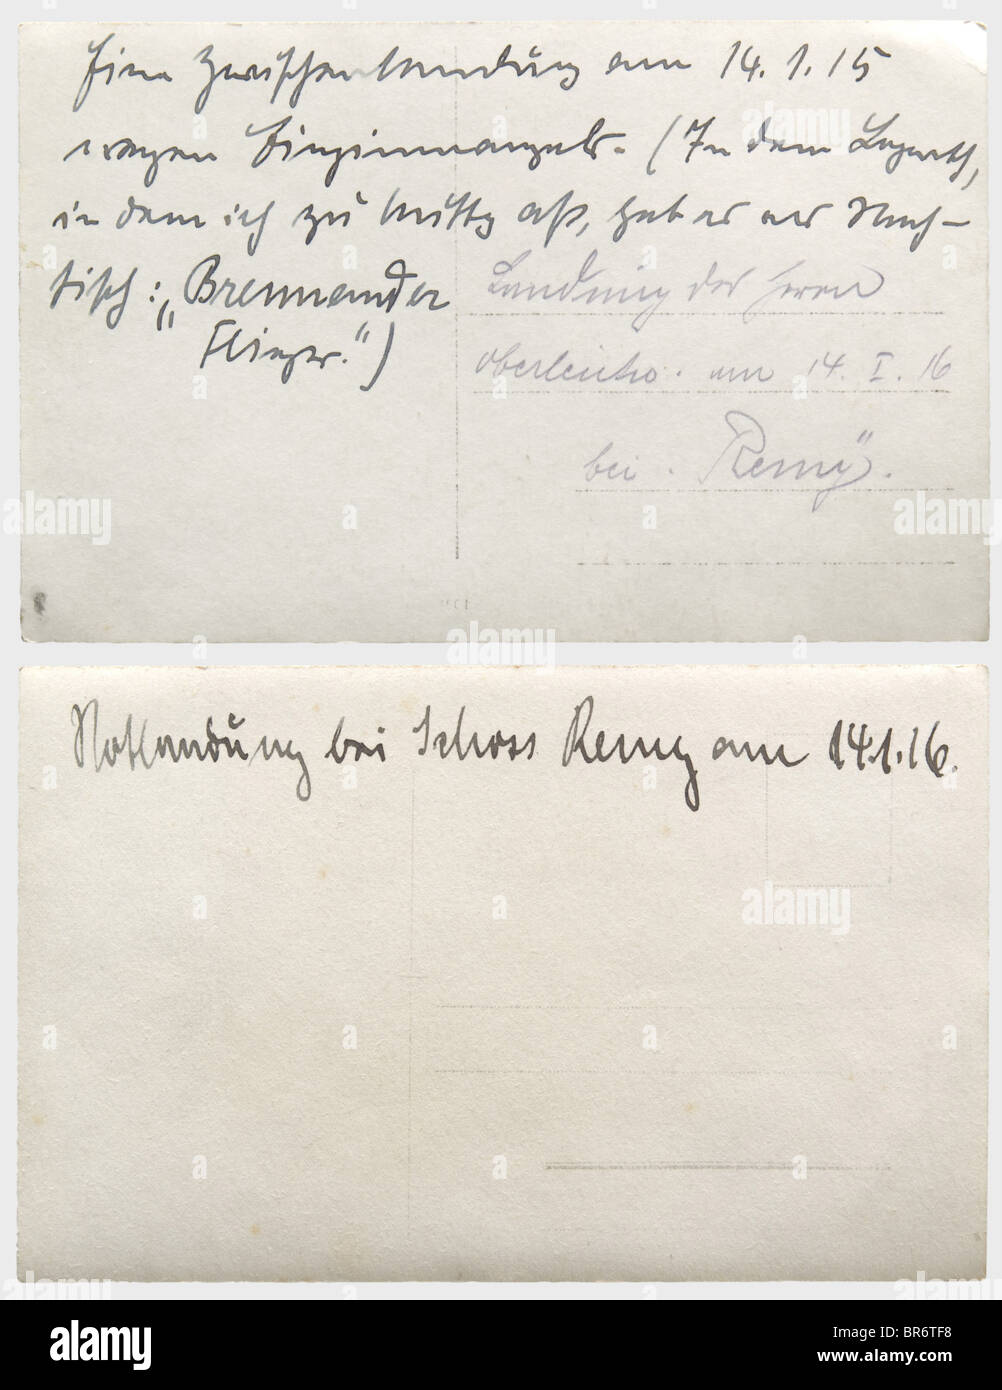 Eine Zwischenlandung am 14.1.15
wegen Benzinmangels. (In dem Lazarett,
in dem ich zu Mittag aß, gab es als Nach-
tisch: „Brennender
Flieger.")
Landung der Herren
Oberleutn. am 14. I. 16
bei Remÿ.
Notlandung bei Schloss Remy am 14.1.16.
alamy
Image ID: BR6TF8
www.alamy.com